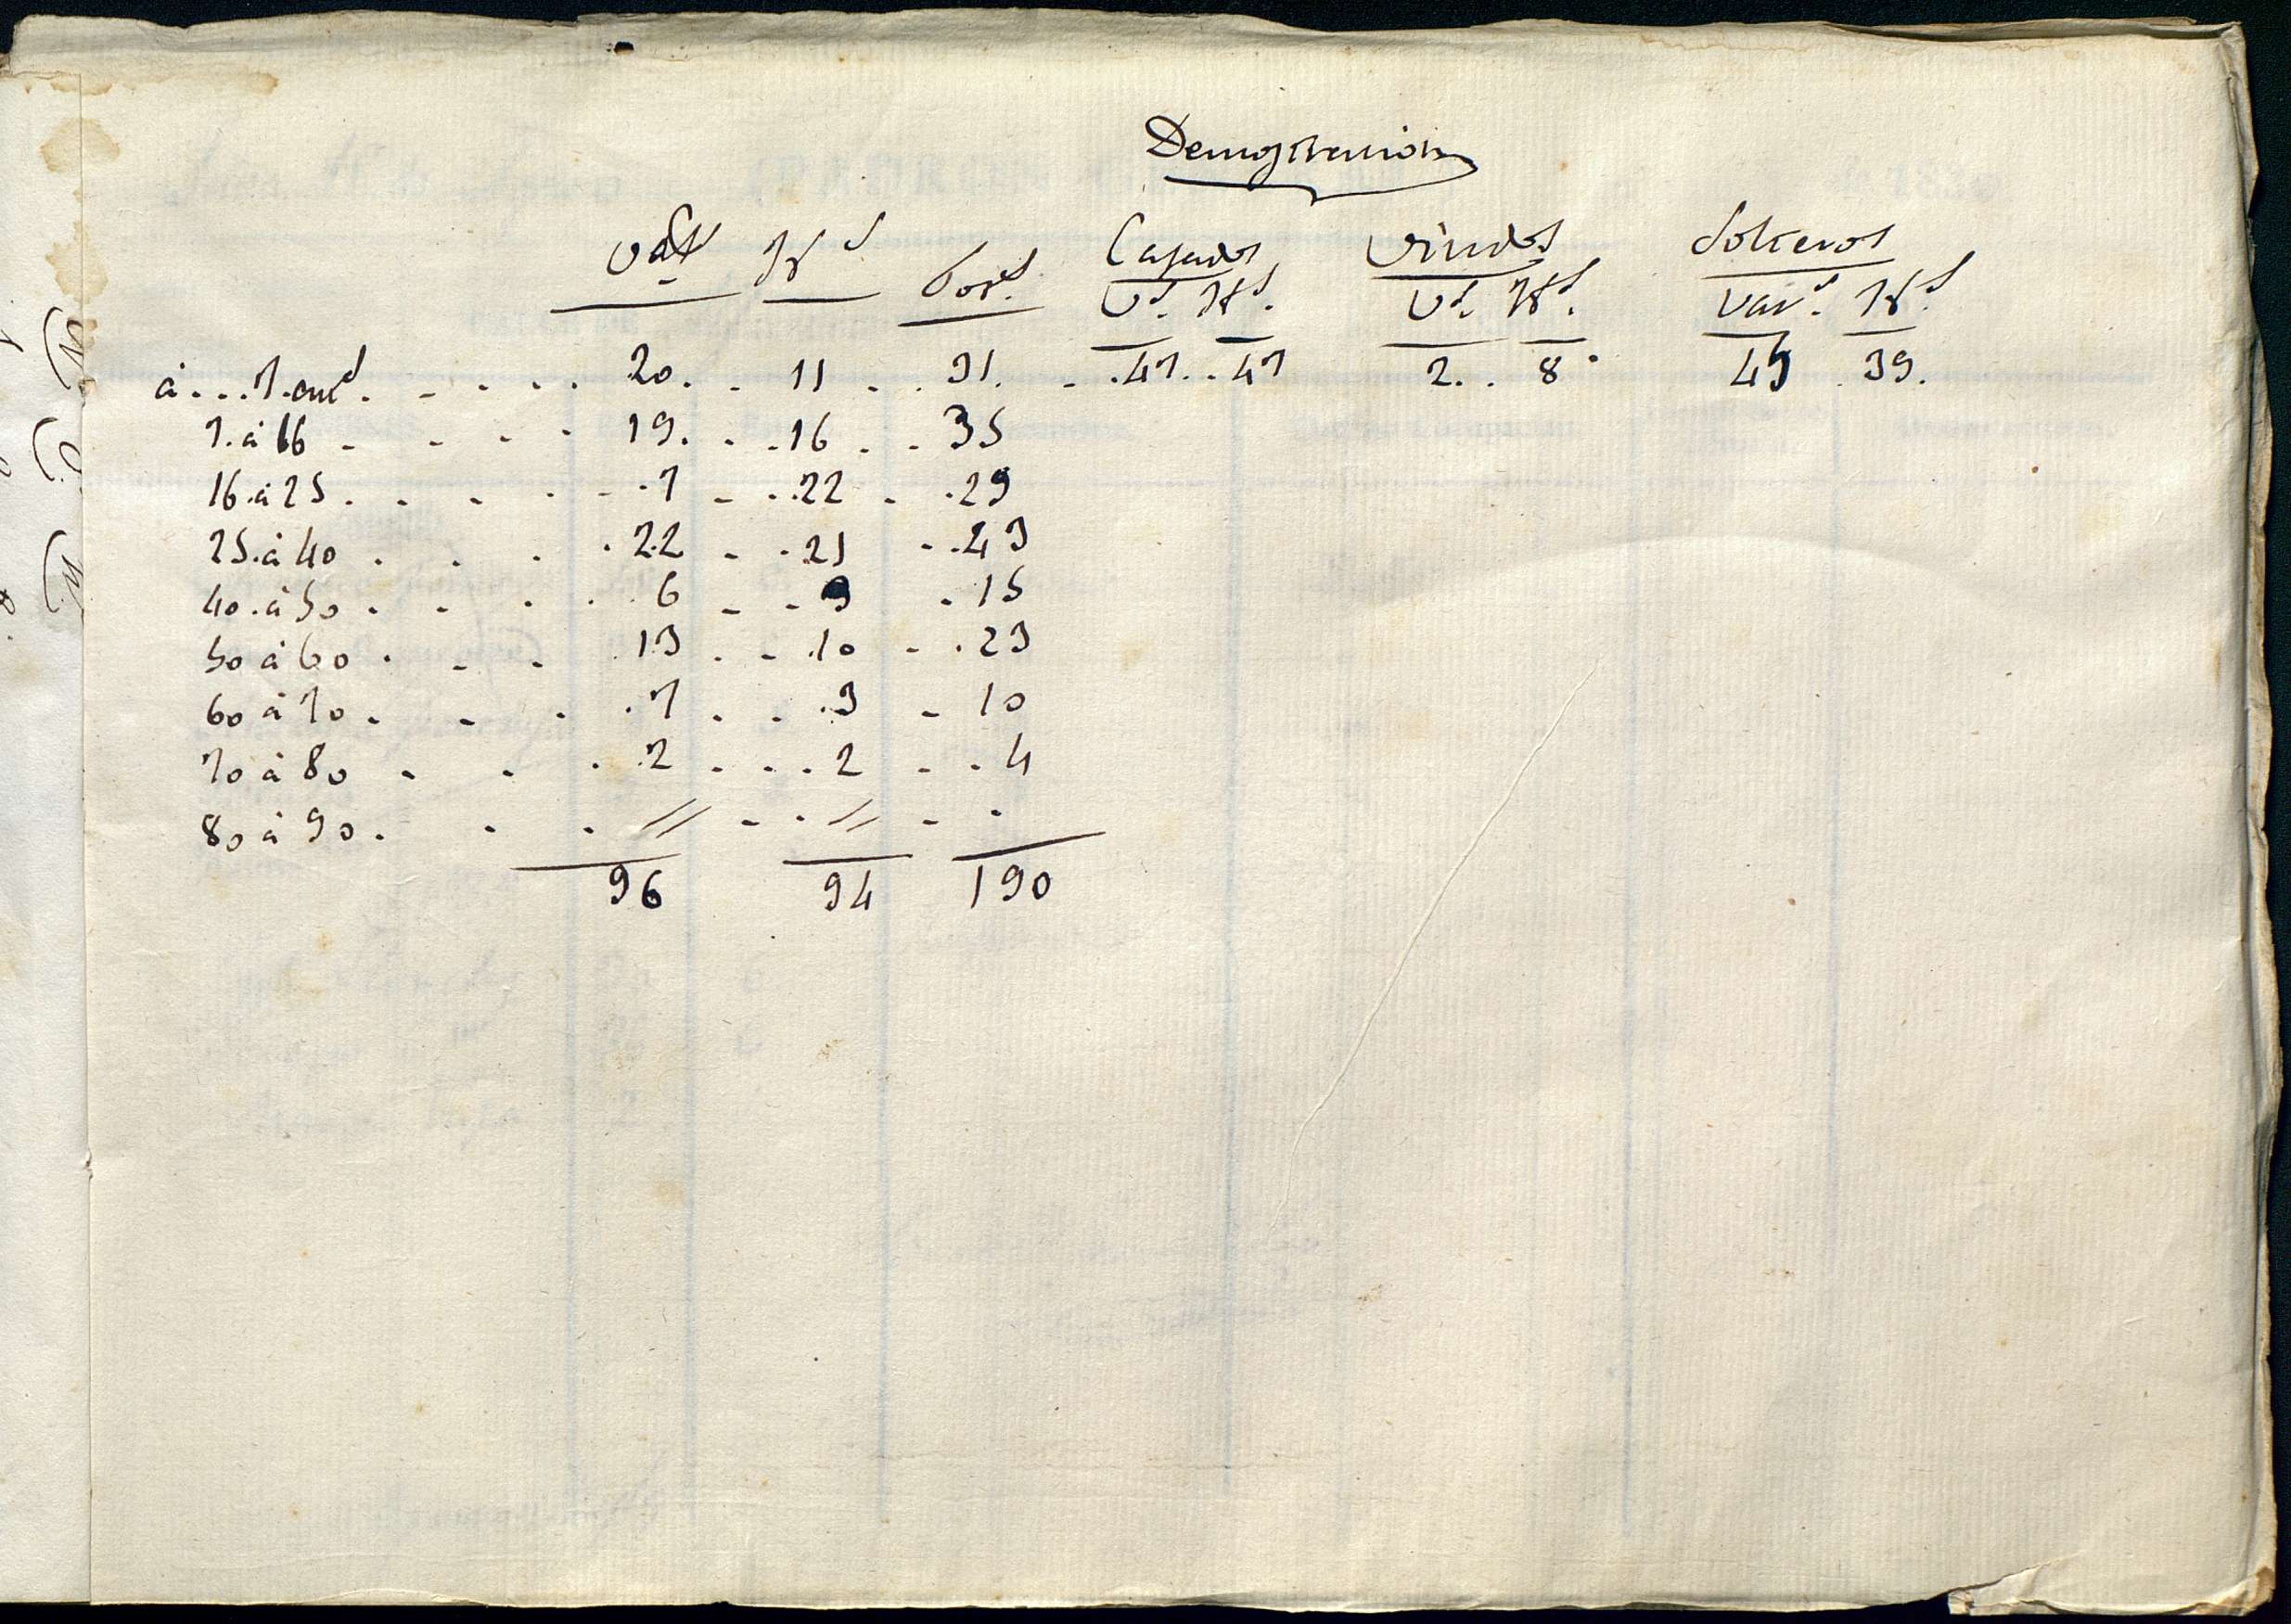 Demostracion
Vars Hs Tots Casados Viudos Solteros
Vs. Hs. Vs. Hs. Vars. Hs.
à...7.añs. 20. 11 31. 47. 47 2. 8. 47 39.
7. à 16 19. 16 35
16. à 25 7 22 29
25. à 40 22 21 43
40. à 50 6 9 15
50 à 60 13 10 23
60 à 70 7 3 10
70 à 80 2 2 4
80 à 90 // //
96 94 190